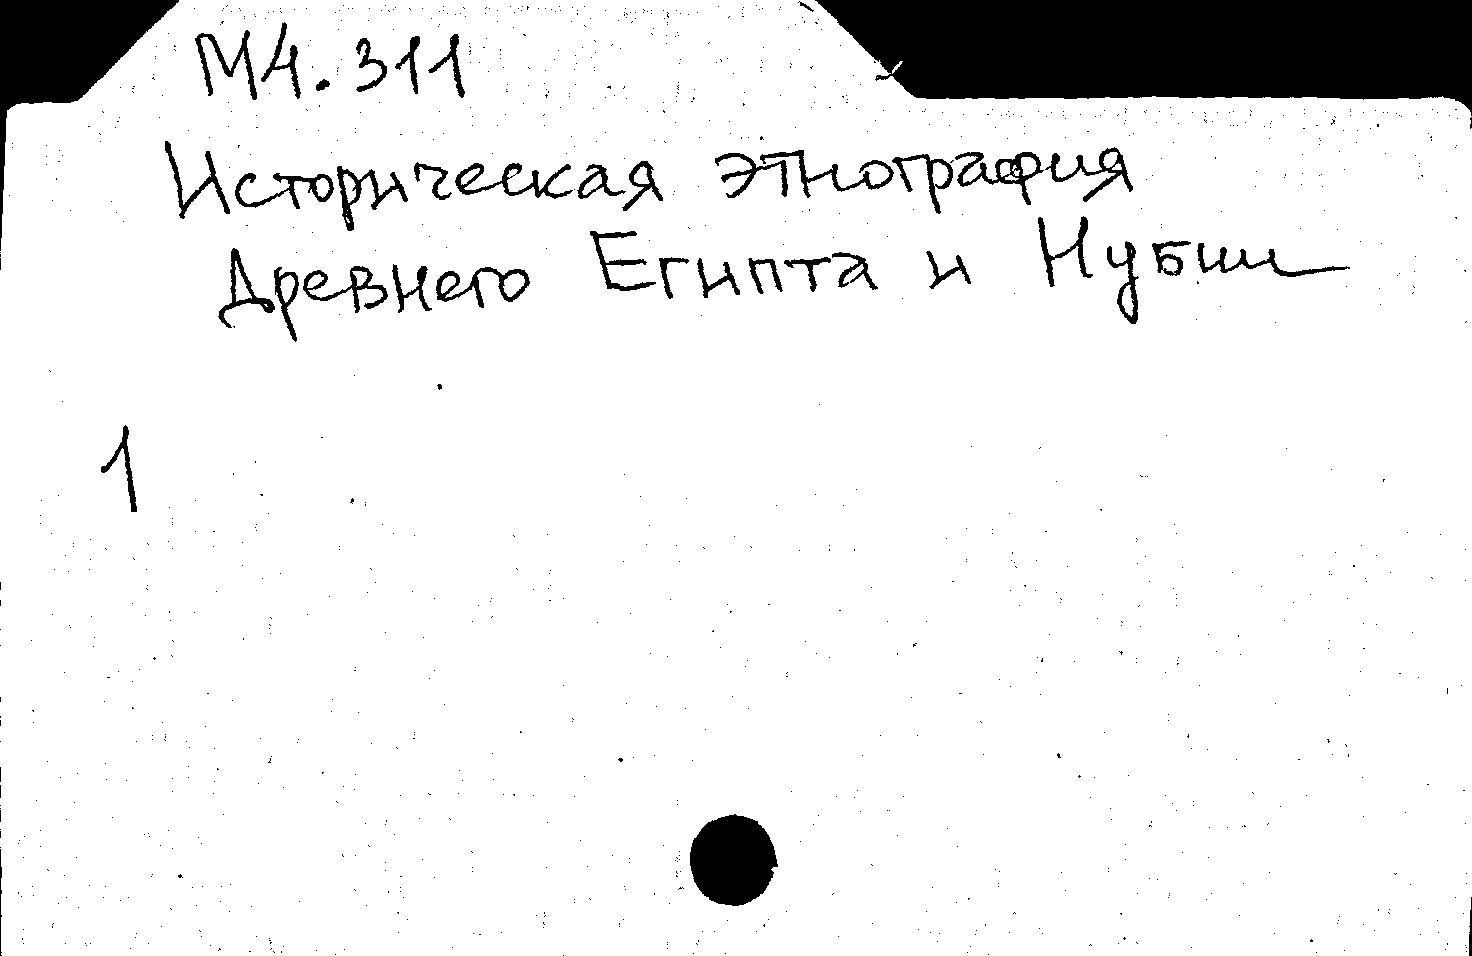 М4.311
Историческая этнография
Древнего Египта и Нубии
1